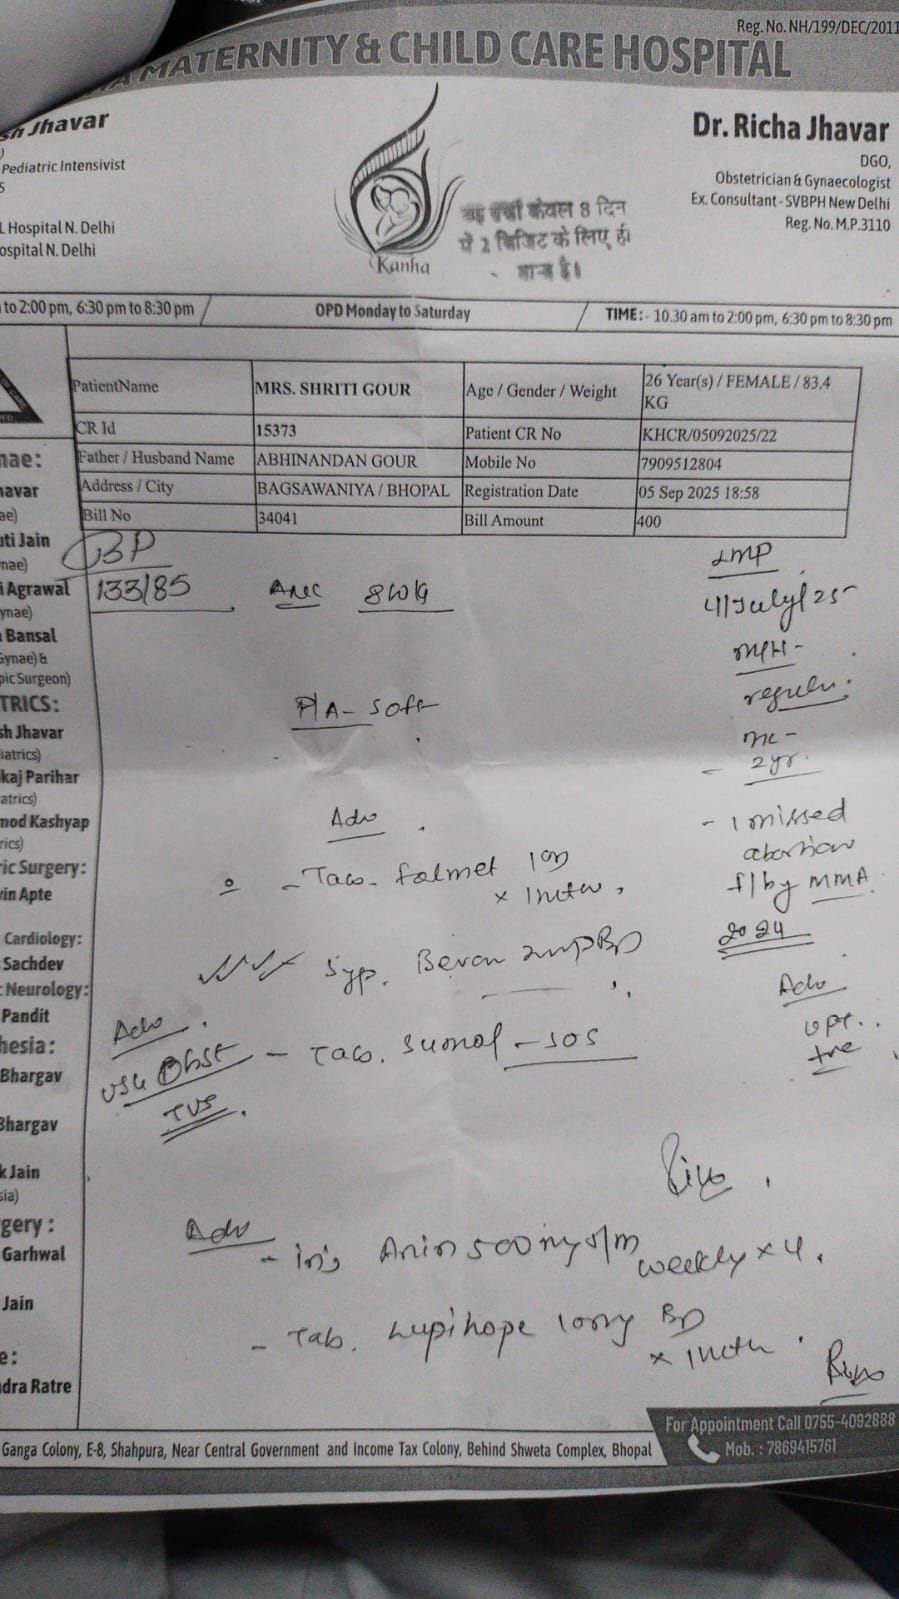 Reg. No. NH/199/DEC/2011
MATERNITY & CHILD CARE HOSPITAL
sh Jhavar
Pediatric Intensivist
L Hospital N. Delhi
ospital N. Delhi
Kanha
यह पर्चा केवल 8 दिन
में 2 विजिट के लिए ही
मान्य है।
Dr. Richa Jhavar
DGO,
Obstetrician & Gynaecologist
Ex. Consultant - SVBPH New Delhi
Reg. No. M.P.3110
to 2:00 pm, 6:30 pm to 8:30 pm
OPD Monday to Saturday
TIME:- 10.30 am to 2:00 pm, 6:30 pm to 8:30 pm
PatientName MRS. SHRITI GOUR Age / Gender / Weight 26 Year(s) / FEMALE / 83.4 KG
CR Id 15373 Patient CR No KHCR/05092025/22
Father / Husband Name ABHINANDAN GOUR Mobile No 7909512804
Address / City BAGSAWANIYA / BHOPAL Registration Date 05 Sep 2025 18:58
Bill No 34041 Bill Amount 400
nae:
havar
ae)
uti Jain
nae)
i Agrawal
ynae)
Bansal
Gynae) &
pic Surgeon)
TRICS:
sh Jhavar
iatrics)
kaj Parihar
atrics)
mod Kashyap
rics)
ric Surgery:
vin Apte
Cardiology:
Sachdev
Neurology:
Pandit
hesia:
Bhargav
Bhargav
k Jain
sia)
gery:
Garhwal
Jain
e:
dra Ratre
BP
133/85
ANC 8 WKG
LMP
4/July/25
MPH-
regular.
P/A- soft
2yr.
Adv
- 1 missed
abortion
f/by MMA
2024
- Tab. folmet 1 OD
Syp. 2
Adv
UPT
+ve
Adv
USG Obst
TVS
- Tab. - SOS
Adv
- Inj 500 mg I/M
weekly x 4.
- Tab. Lupihope BD
For Appointment Call 0755-4092888
Mob. : 7869415761
Ganga Colony, E-8, Shahpura, Near Central Government and Income Tax Colony, Behind Shweta Complex, Bhopal